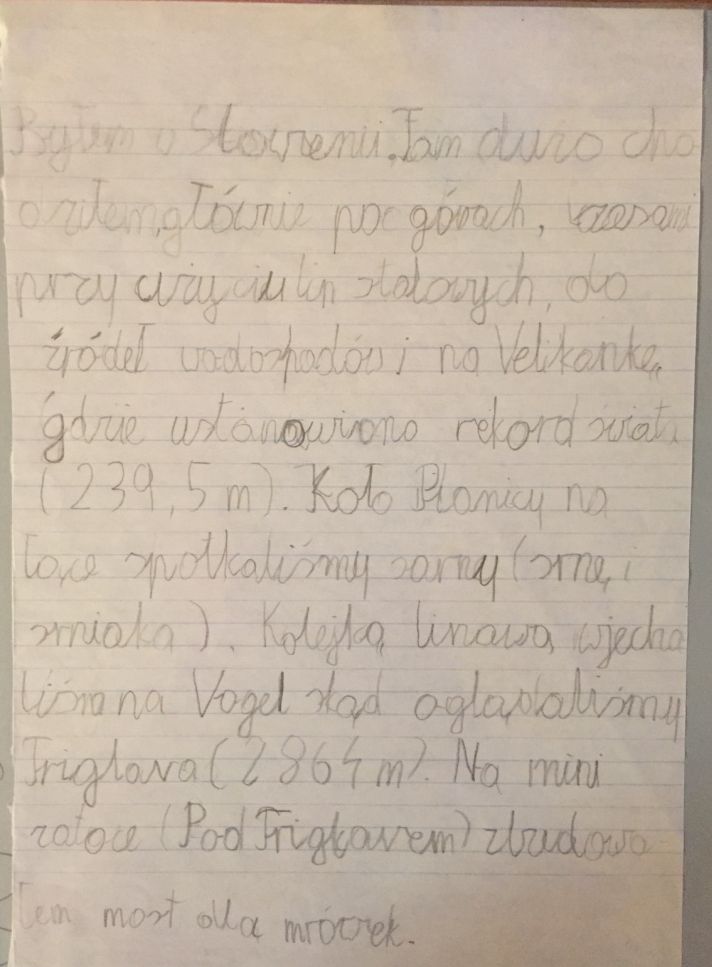 Byłem o Słowenii. Tam dużo cho
dziłem, głównie po górach, czasami
przy użyciu lin stalowych, do
źródeł wodospadów i na Velikankę,
gdzie ustanowiono rekord świata
(239,5 m). Koło Planicy na
łące spotkaliśmy sarny (srnę i
srniaka). Kolejką linową wjecha
liśmy na Vogel skąd oglądaliśmy
Triglava (2864 m). Na mini
zatoce (Pod Triglavem) zbudowa
łem most dla mrówek.